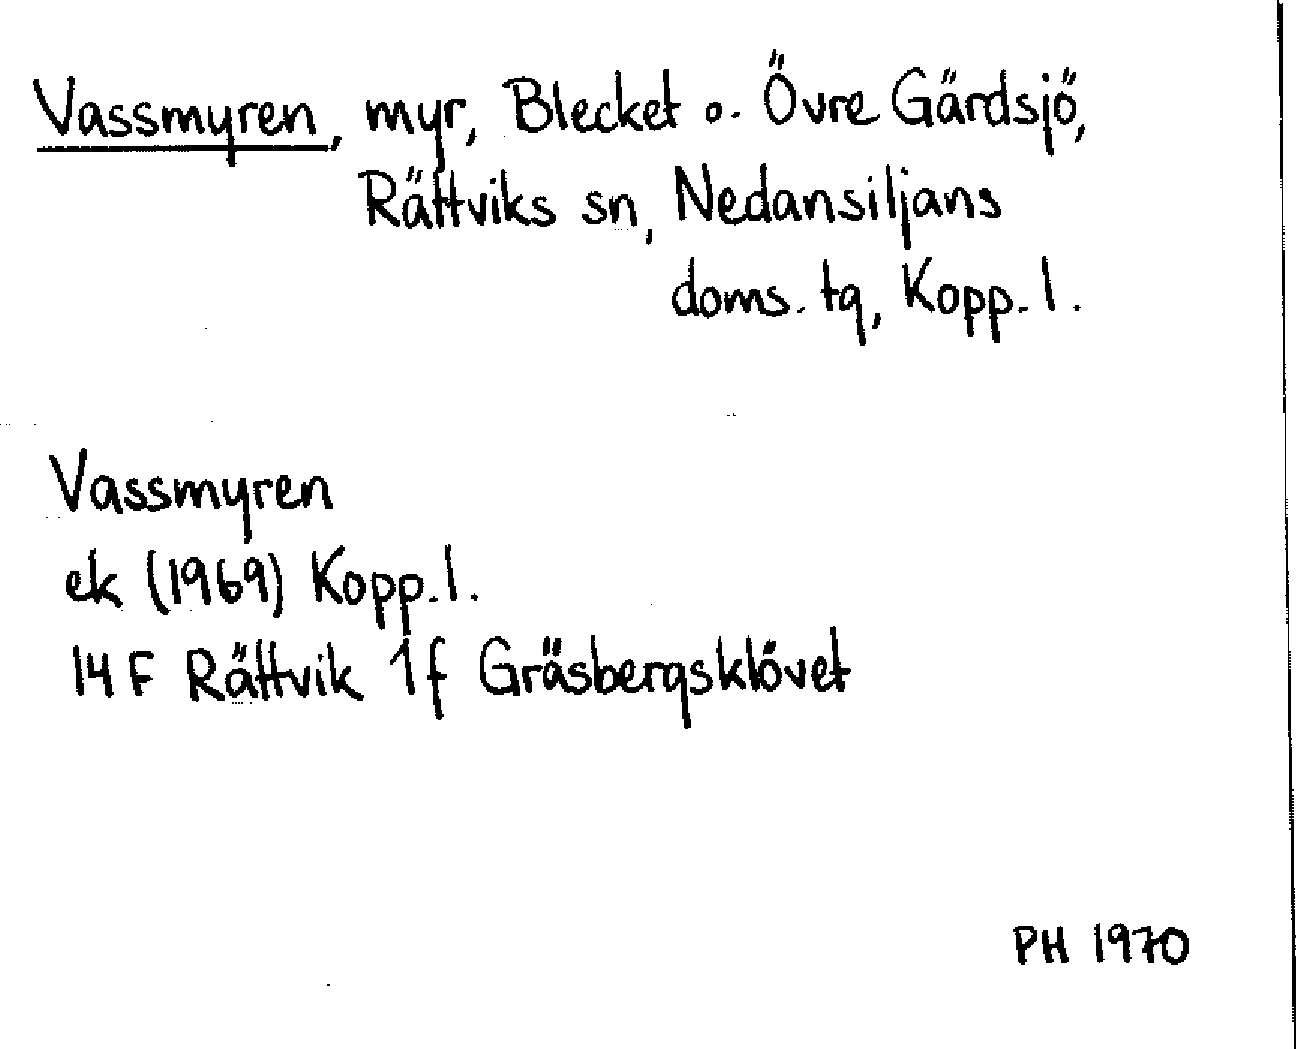 Vassmyren, myr, Blecket o. Övre Gärdsjö,
Rättviks sn, Nedansiljans
doms. tg, Kopp. l.
Vassmyren
ek (1969) Kopp. l.
14 F Rättvik 1f Gräsbergsklövet
PH 1970